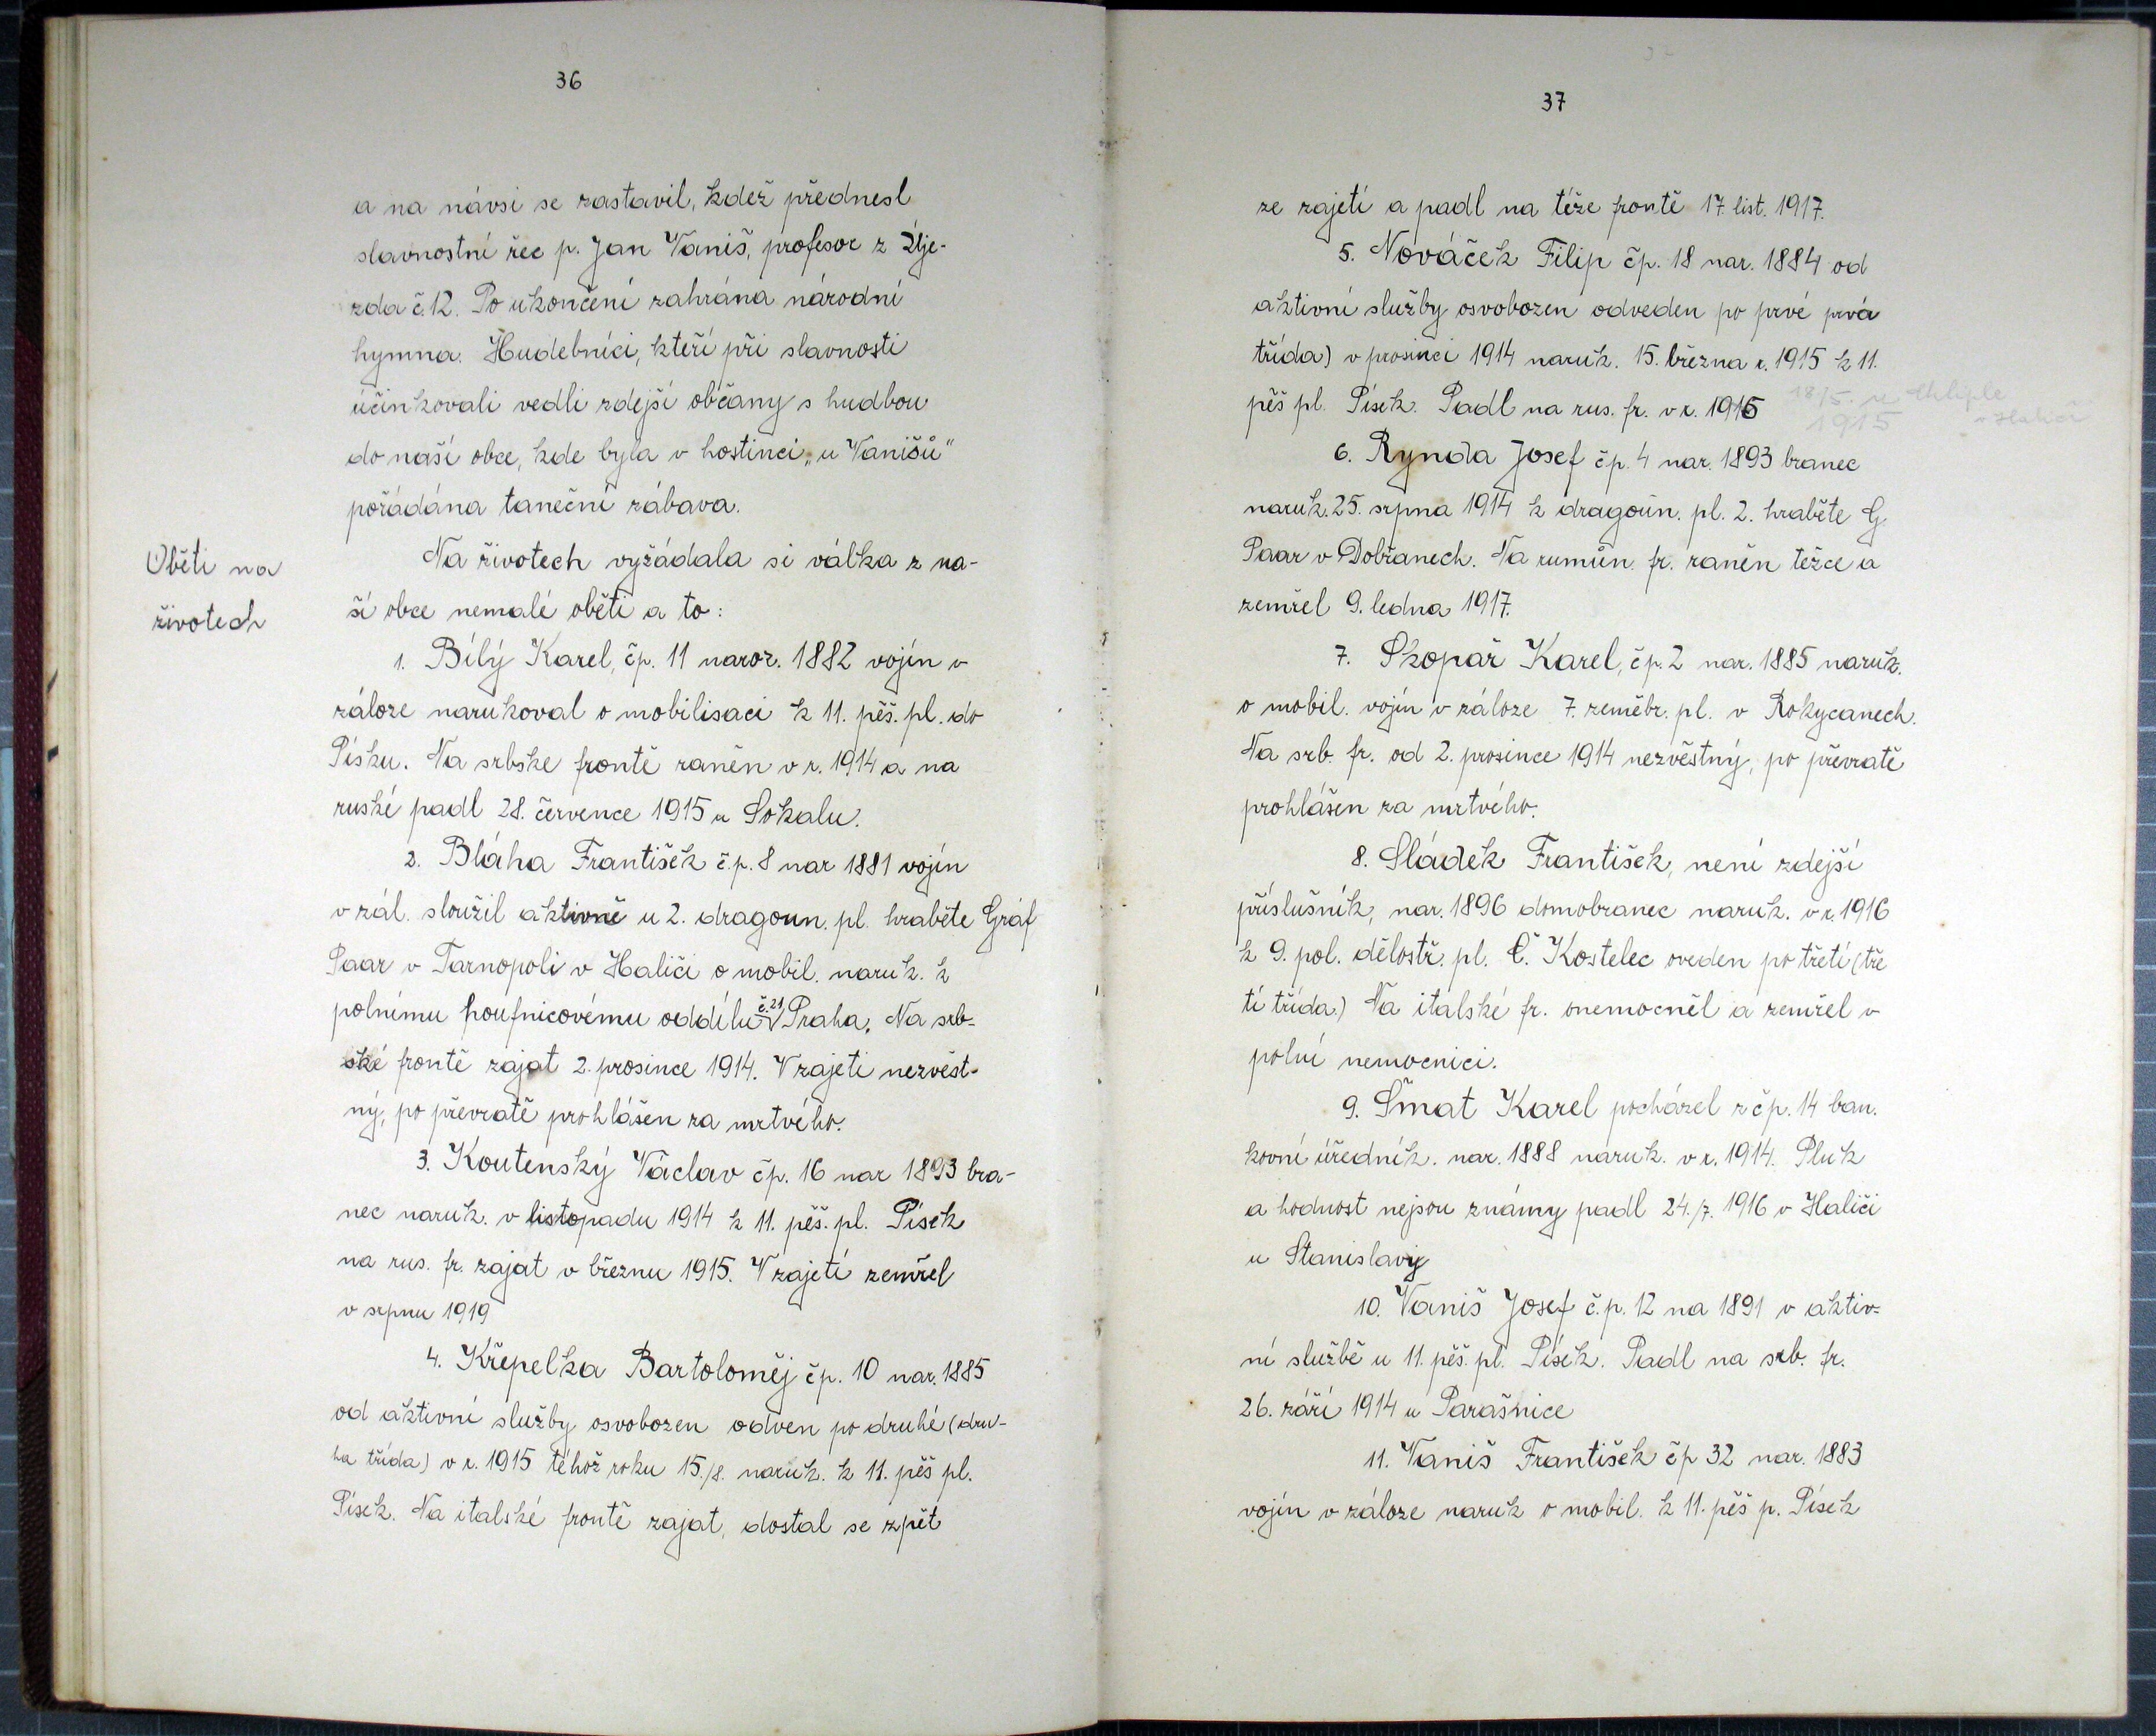 36
a na návsi se zastavil, kdež přednesl
slavnostní řeč p. Jan Vaniš, profesor z Új-
zda č. 12. Po ukončení zahrána národní
hymna. Hudebníci, kteří při slavnosti
účinkovali vedli zdejší občany s hudbou
do naší obce, kde byla v hostinci „u Vanišů"
pořádána taneční zábava.
Oběti na
životech
Na životech vyžádala si válka z na-
ší obce nemalé oběti a to:
1. Bílý Karel, čp. 11 naroz. 1882 vojín v
záloze narukoval o mobilisaci k 11. pěš. pl. do
Písku. Na srbske frontě raněn v r. 1914 a na
ruské padl 28. července 1915 u Sokalu.
2. Bláha František č.p. 8 nar 1881 vojín
v zál. sloužil aktivně u 2. dragoun. pl. hraběte Gráf
Paar v Tarnopoli v Haliči o mobil. naruk. k
polnímu houfnicovému oddílu č. 21 Praha. Na srb-
ské frontě zajat 2. prosince 1914. V zajetí nezvěst-
ný, po převratě prohlášen za mrtvého.
3. Koutenský Václav čp. 16 nar 1893 bra-
nec naruk. v listopadu 1914 k 11. pěš. pl. Písek
na rus. fr. zajat v březnu 1915. V zajetí zemřel
v srpnu 1919
4. Křepelka Bartoloměj čp. 10 nar. 1885
od aktivní služby osvobozen odven po druhé (dru-
ha třída) v r. 1915 téhož roku 15./8. naruk. k 11. pěš pl.
Písek. Na italské frontě zajat, dostal se zpět
37
ze zajetí a padl na téže frontě 17 list. 1917.
5. Nováček Filip čp. 18 nar. 1884 od
aktivní služby osvobozen odveden po prvé prvá
třída) v prosinci 1914 naruk. 15. března r. 1915 k 11.
pěš pl. Písek. Padl na rus. fr. v r. 1915
18/5. u
1915 v Haliči
6. Rynda Josef čp. 4 nar. 1893 branec
naruk. 25. srpna 1914 k dragoun. pl. 2. hraběte G
Paar v Dobřanech. Na rumun. fr. raněn težce a
zemřel 9. ledna 1917.
7. Skopař Karel, čp. 2 nar. 1885 naruk.
o mobil. vojín v záloze 7. zeměbr. pl. v Rokycanech.
Na srb. fr. od 2. prosince 1914 nezvěstný, po převratě
prohlášen za mrtvého.
8. Sládek František, není zdejší
příslušník, nar. 1896 domobranec naruk. v r. 1916
k 9. pol. dělostř. pl. Č. Kostelec oveden po třetí (tře
tí třída) Na italské fr. onemocněl a zemřel v
polní nemocnici.
9. Šmat Karel pocházel z čp. 14 ban.
kovní úředník. nar. 1888 naruk. v r. 1914. Pluk
a hodnost nejsou známy padl 24./7. 1916 v Haliči
u Stanislavy
10. Vaniš Josef č.p. 12 na 1891 v aktiv-
ní službě u 11. pěš. pl. Písek. Padl na srb. fr.
26. září 1914 u Parašnice
11. Vaniš František čp 32 nar. 1883
vojín v záloze naruk o mobil. k 11. pěš p. Písek